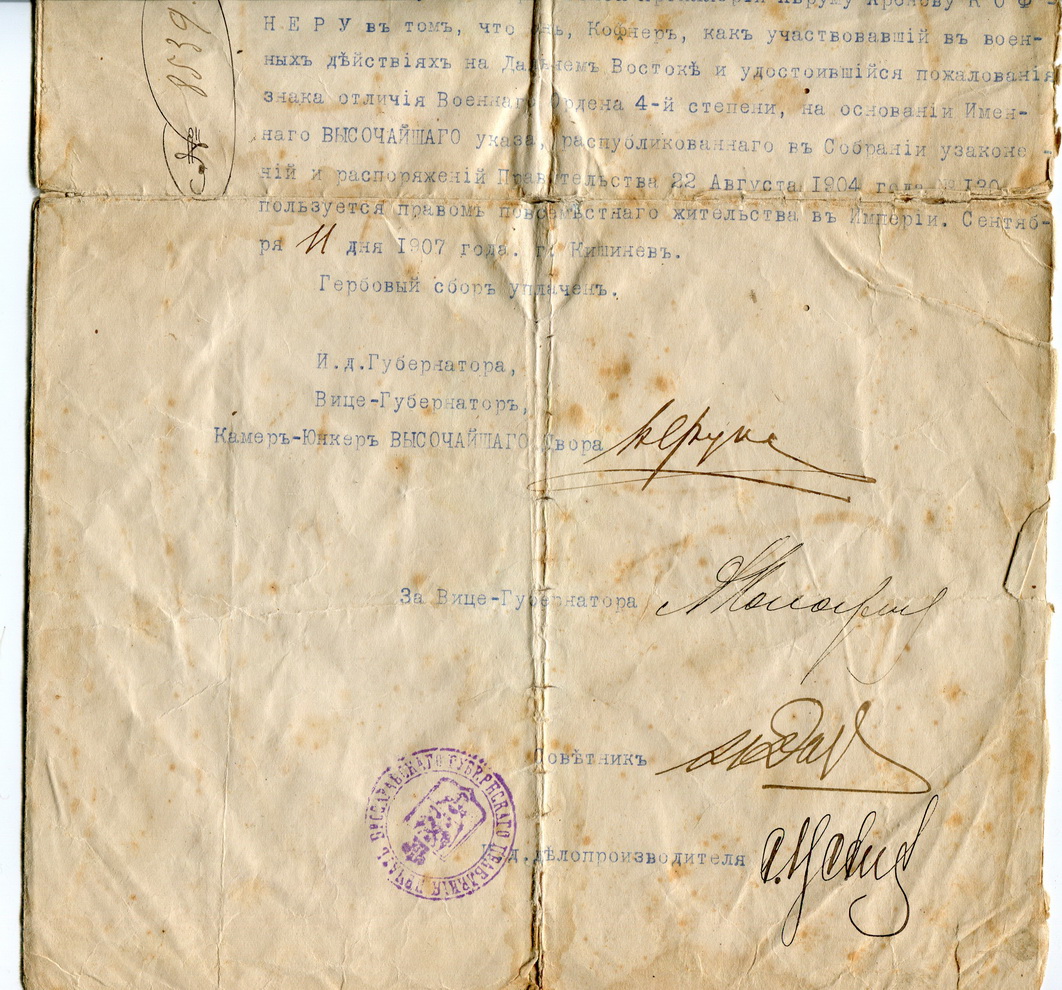 Артиллеріи К О Ф -
Н Е Р У въ томъ, что онъ, Кофнеръ, какъ участвовавшій въ воен-
ныхъ дѣйствіяхъ на Дальнемъ Востокѣ и удостоившійся пожалованія
знака отличія Военнаго Ордена 4-й степени, на основаніи Имен-
наго ВЫСОЧАЙШАГО указа, распубликованнаго въ Собраніи узаконе -
ній и распоряженій Правительства 22 Августа 1904 года № 130
пользуется правомъ повсемѣстнаго жительства въ Имперіи. Сентяб-
ря 11 дня 1907 года. г. Кишиневъ.
Гербовый сборъ уплаченъ.
№ 8539.
И.д.Губернатора,
Вице-Губернаторъ,
Камеръ-Юнкеръ ВЫСОЧАЙШАГО Двора
За Вице-Губернатора
Совѣтникъ
И.д.дѣлопроизводителя
ПЕЧАТЬ БЕССАРАБСКАГО ГУБЕРНСКАГО ПРАВЛЕНІЯ